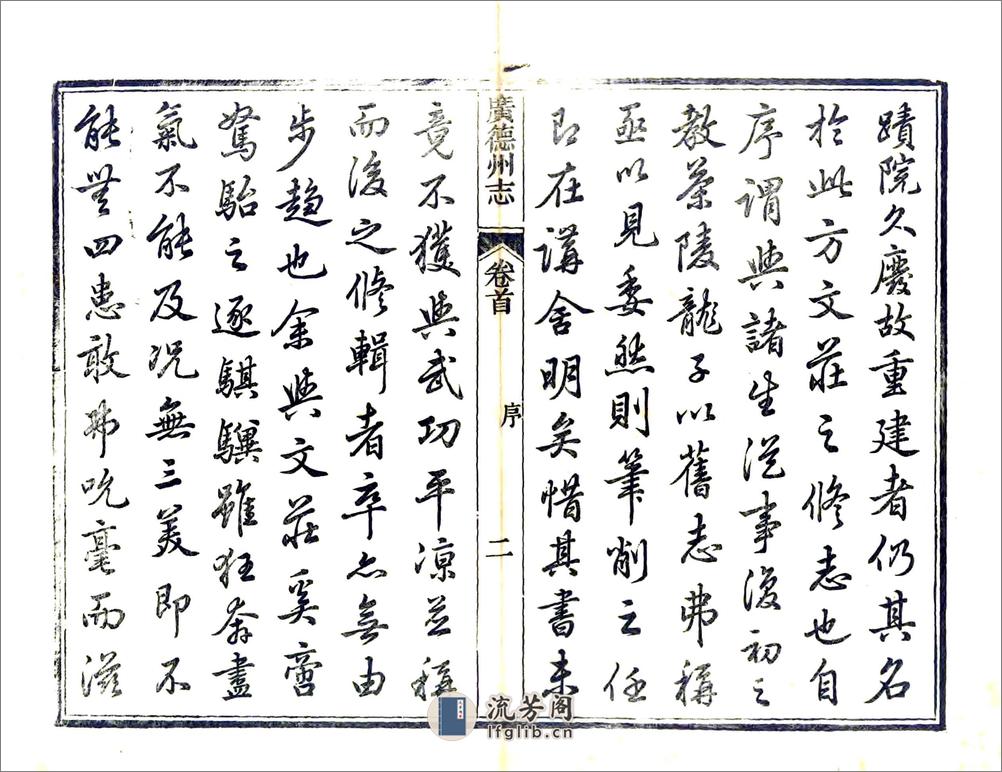 蹟院久廢故重建者仍其名
於此方文莊之修志也自
序謂與諸生從事復初之
教茶陵龍子以舊志弗稱
亟以見委然則筆削之任
即在講舍明矣惜其書未
廣德州志
卷首
序
二
竟不獲與武功平涼並稱
而後之修輯者卒亦無由
步趨也余與文莊奚啻
駑駘之逐騏驥雖狂奔盡
氣不能及况無三美即不
能無四患敢弗吮毫而滋
流芳阁
lfglib.cn